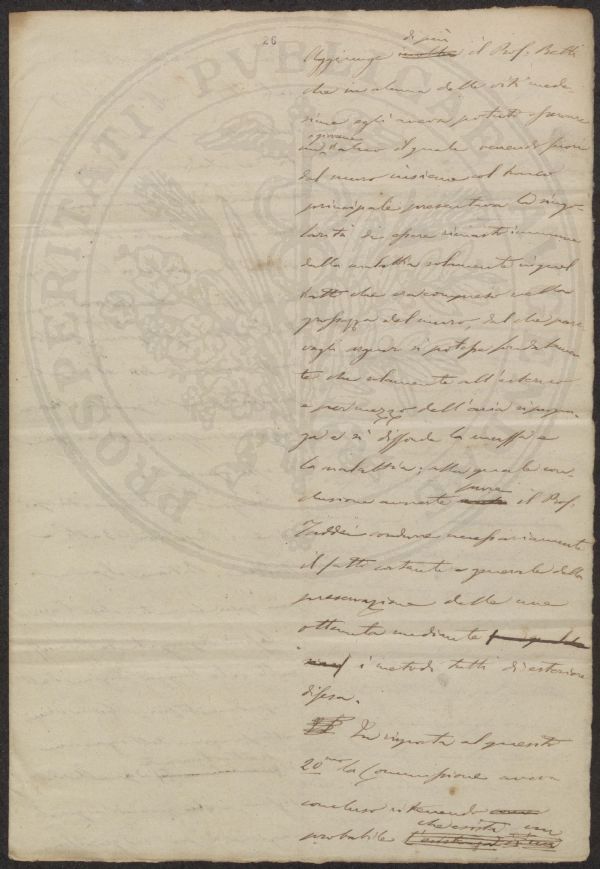 26
di più
Aggiunge il Prof. Betti
che in alcuna delle viti mede-
sime egli aveva potuto osservare
un altro il quale venendo fuori
dal muro insieme col tronco
principale presentava la singo-
larità di essere rimasto immune
dalla malattia solamente in quel
tratto che era compreso nella
grossezza del muro, dal che pare
si potesse
che solamente all'esterno
e per mezzo dell'aria si
e si diffonde la muffa e
la malattia; alla quale con-
clusione avverte pure il Prof.
Taddei condurre necessariamente
il fatto costante e generale della
preservazione delle uve
ottenuta mediante
i metodi tutti di esteriore
difesa.
In risposta al quesito
20mo la Commissione aveva
concluso ritenendo
che esista
probabile
PROSPERITATI PUBLICAE